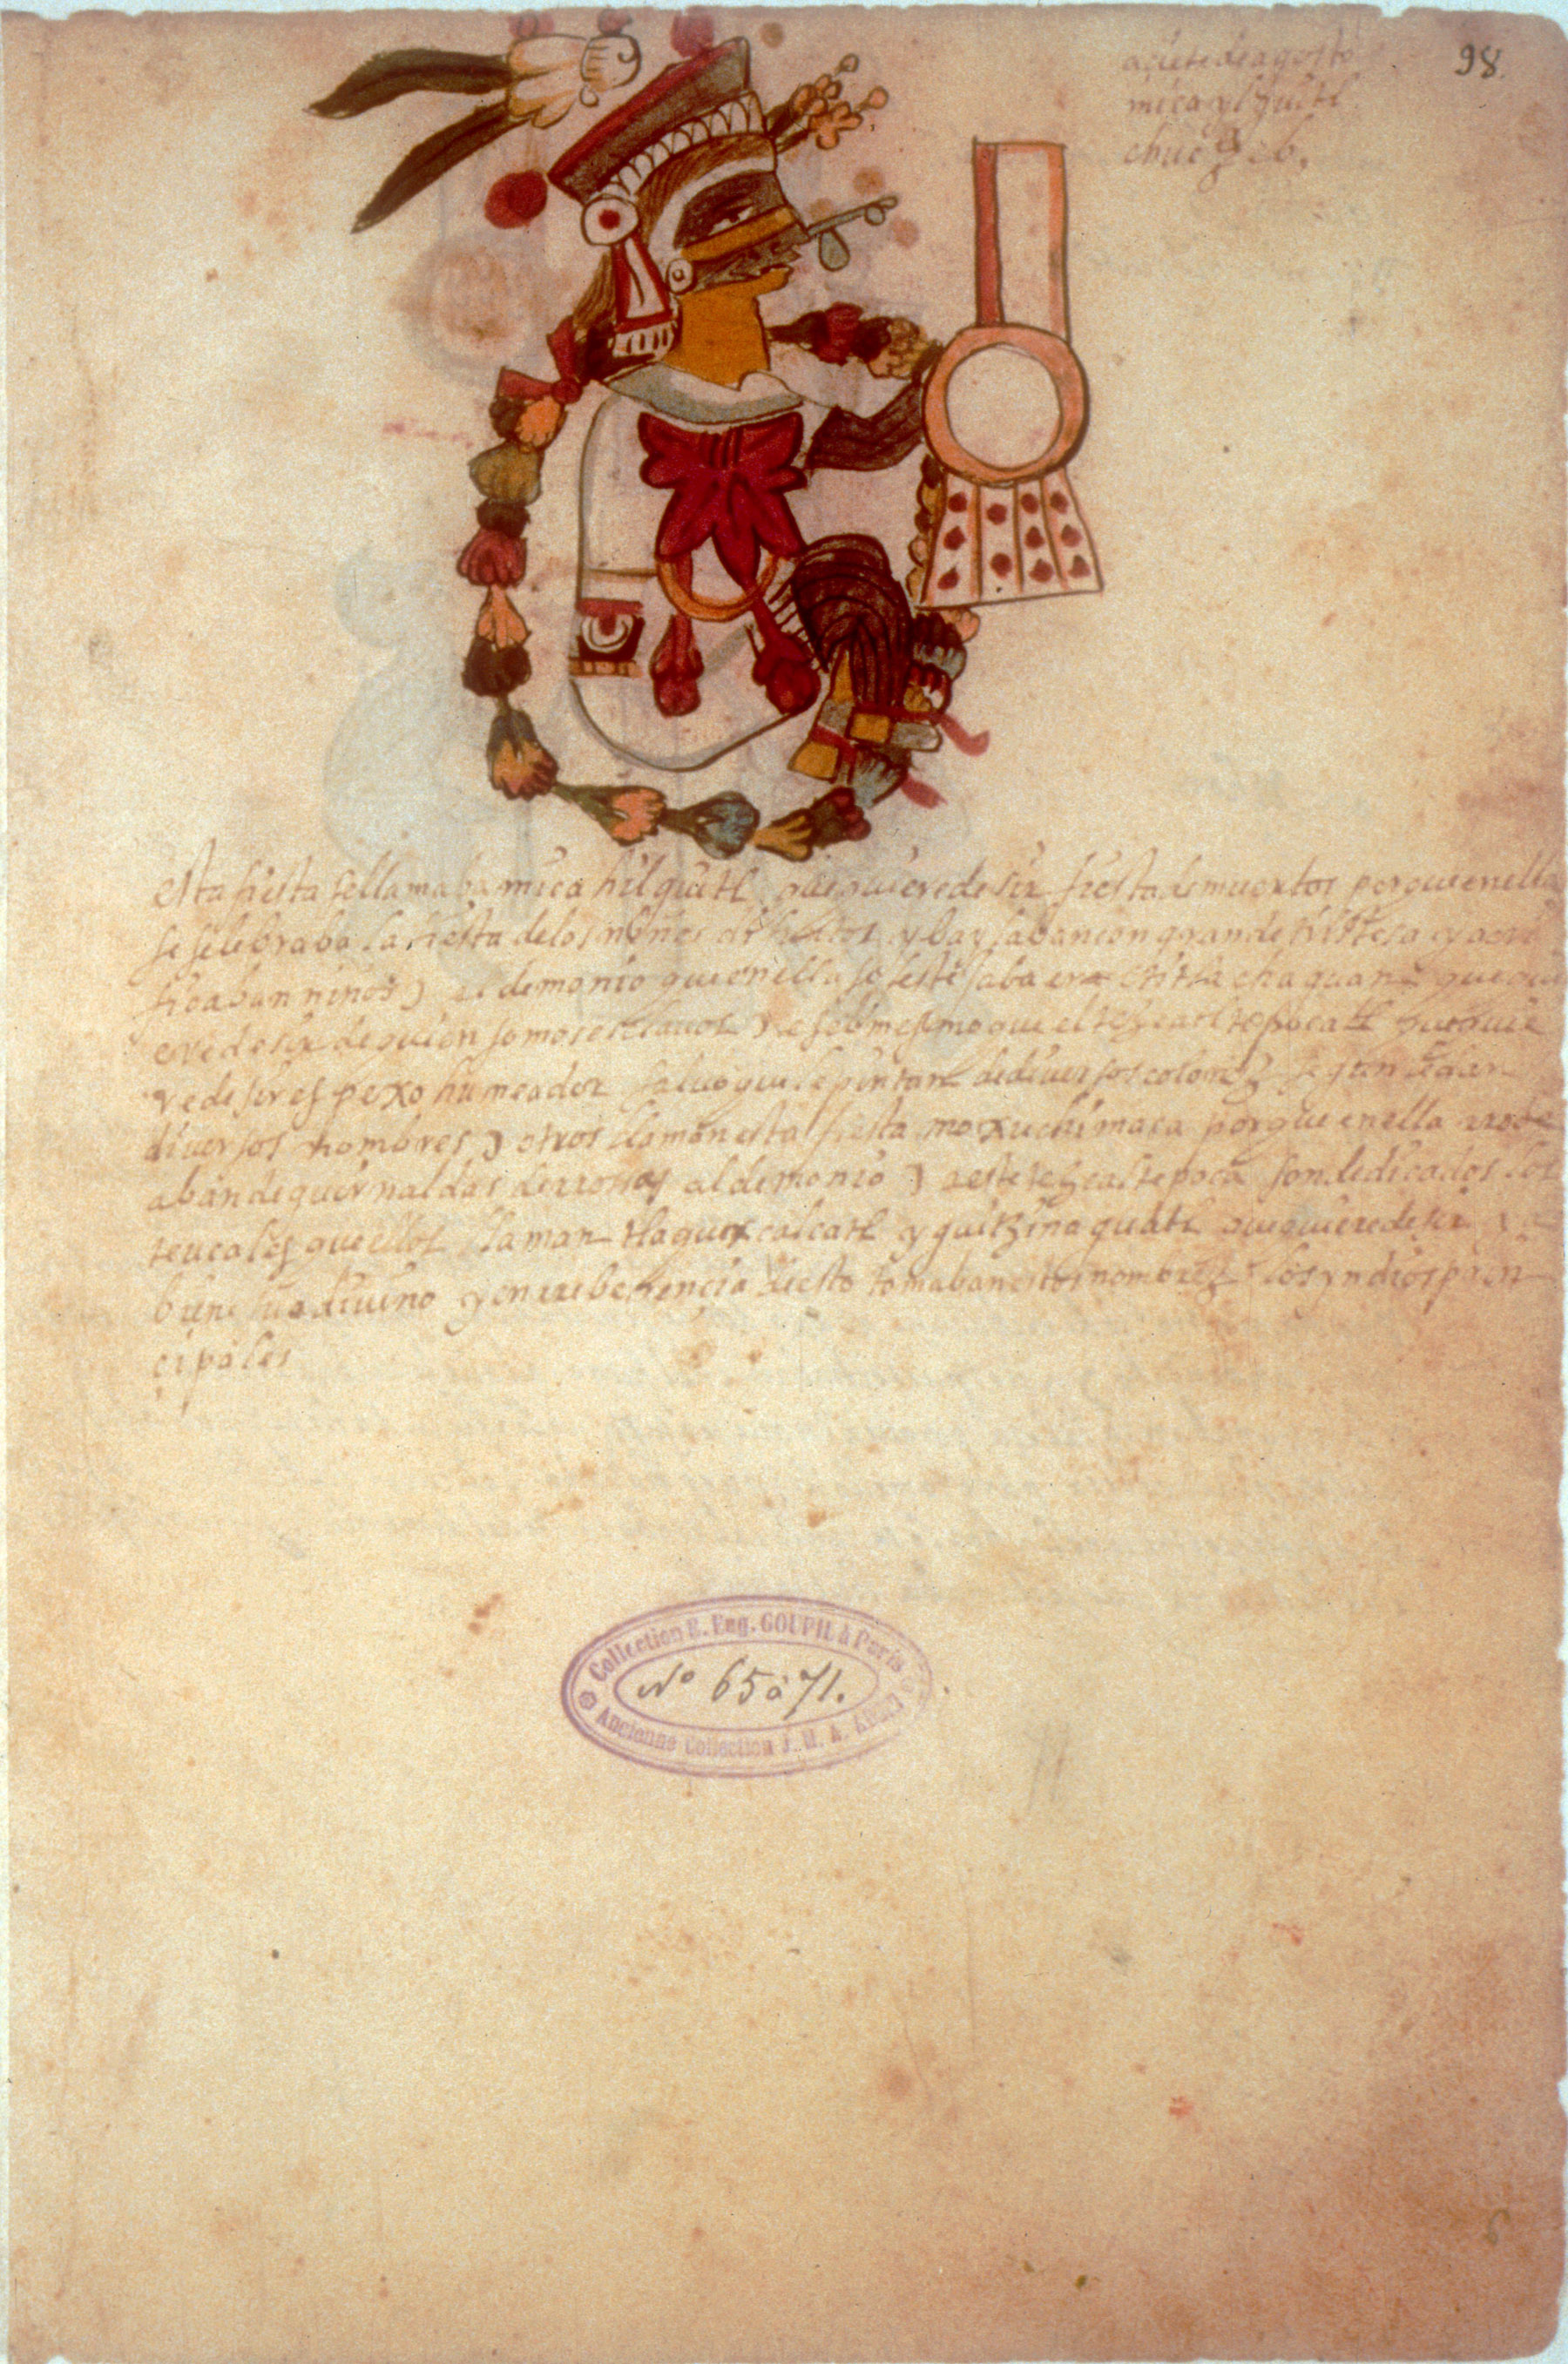 98
a siete de agosto
micaylguitl
esta fiesta se llamaba micahilguitl que quiere desir fiesta de muertos porque en ella
se selebraba la fiesta de los niños y baylaban con grande tristesa y sacri
ficaban niños el demonio que en ella se festejaba era titlachaguan que qui
ere desir de quien somos esclauos es el mesmo que el tezcatltepocatl que quie
re desir espexo humeador saluo que le pintan de diuersos colores segun le dan
diuersos nombres otros llaman esta fiesta moxuchimaca porque en ella
aban de guirnaldas de rrosas al demonio a este tezcatltepoca son dedicados los
teucales que ellos llaman tlaguxcalcatl y guitzinaguatl que quiere desir
diuino y en rreberencia desto tomaban estos nombres los yndios prin
cipales
Collection E. Eug. GOUPIL à Paris
No 65 à 71.
Ancienne Collection J. M. A. AUBIN
6